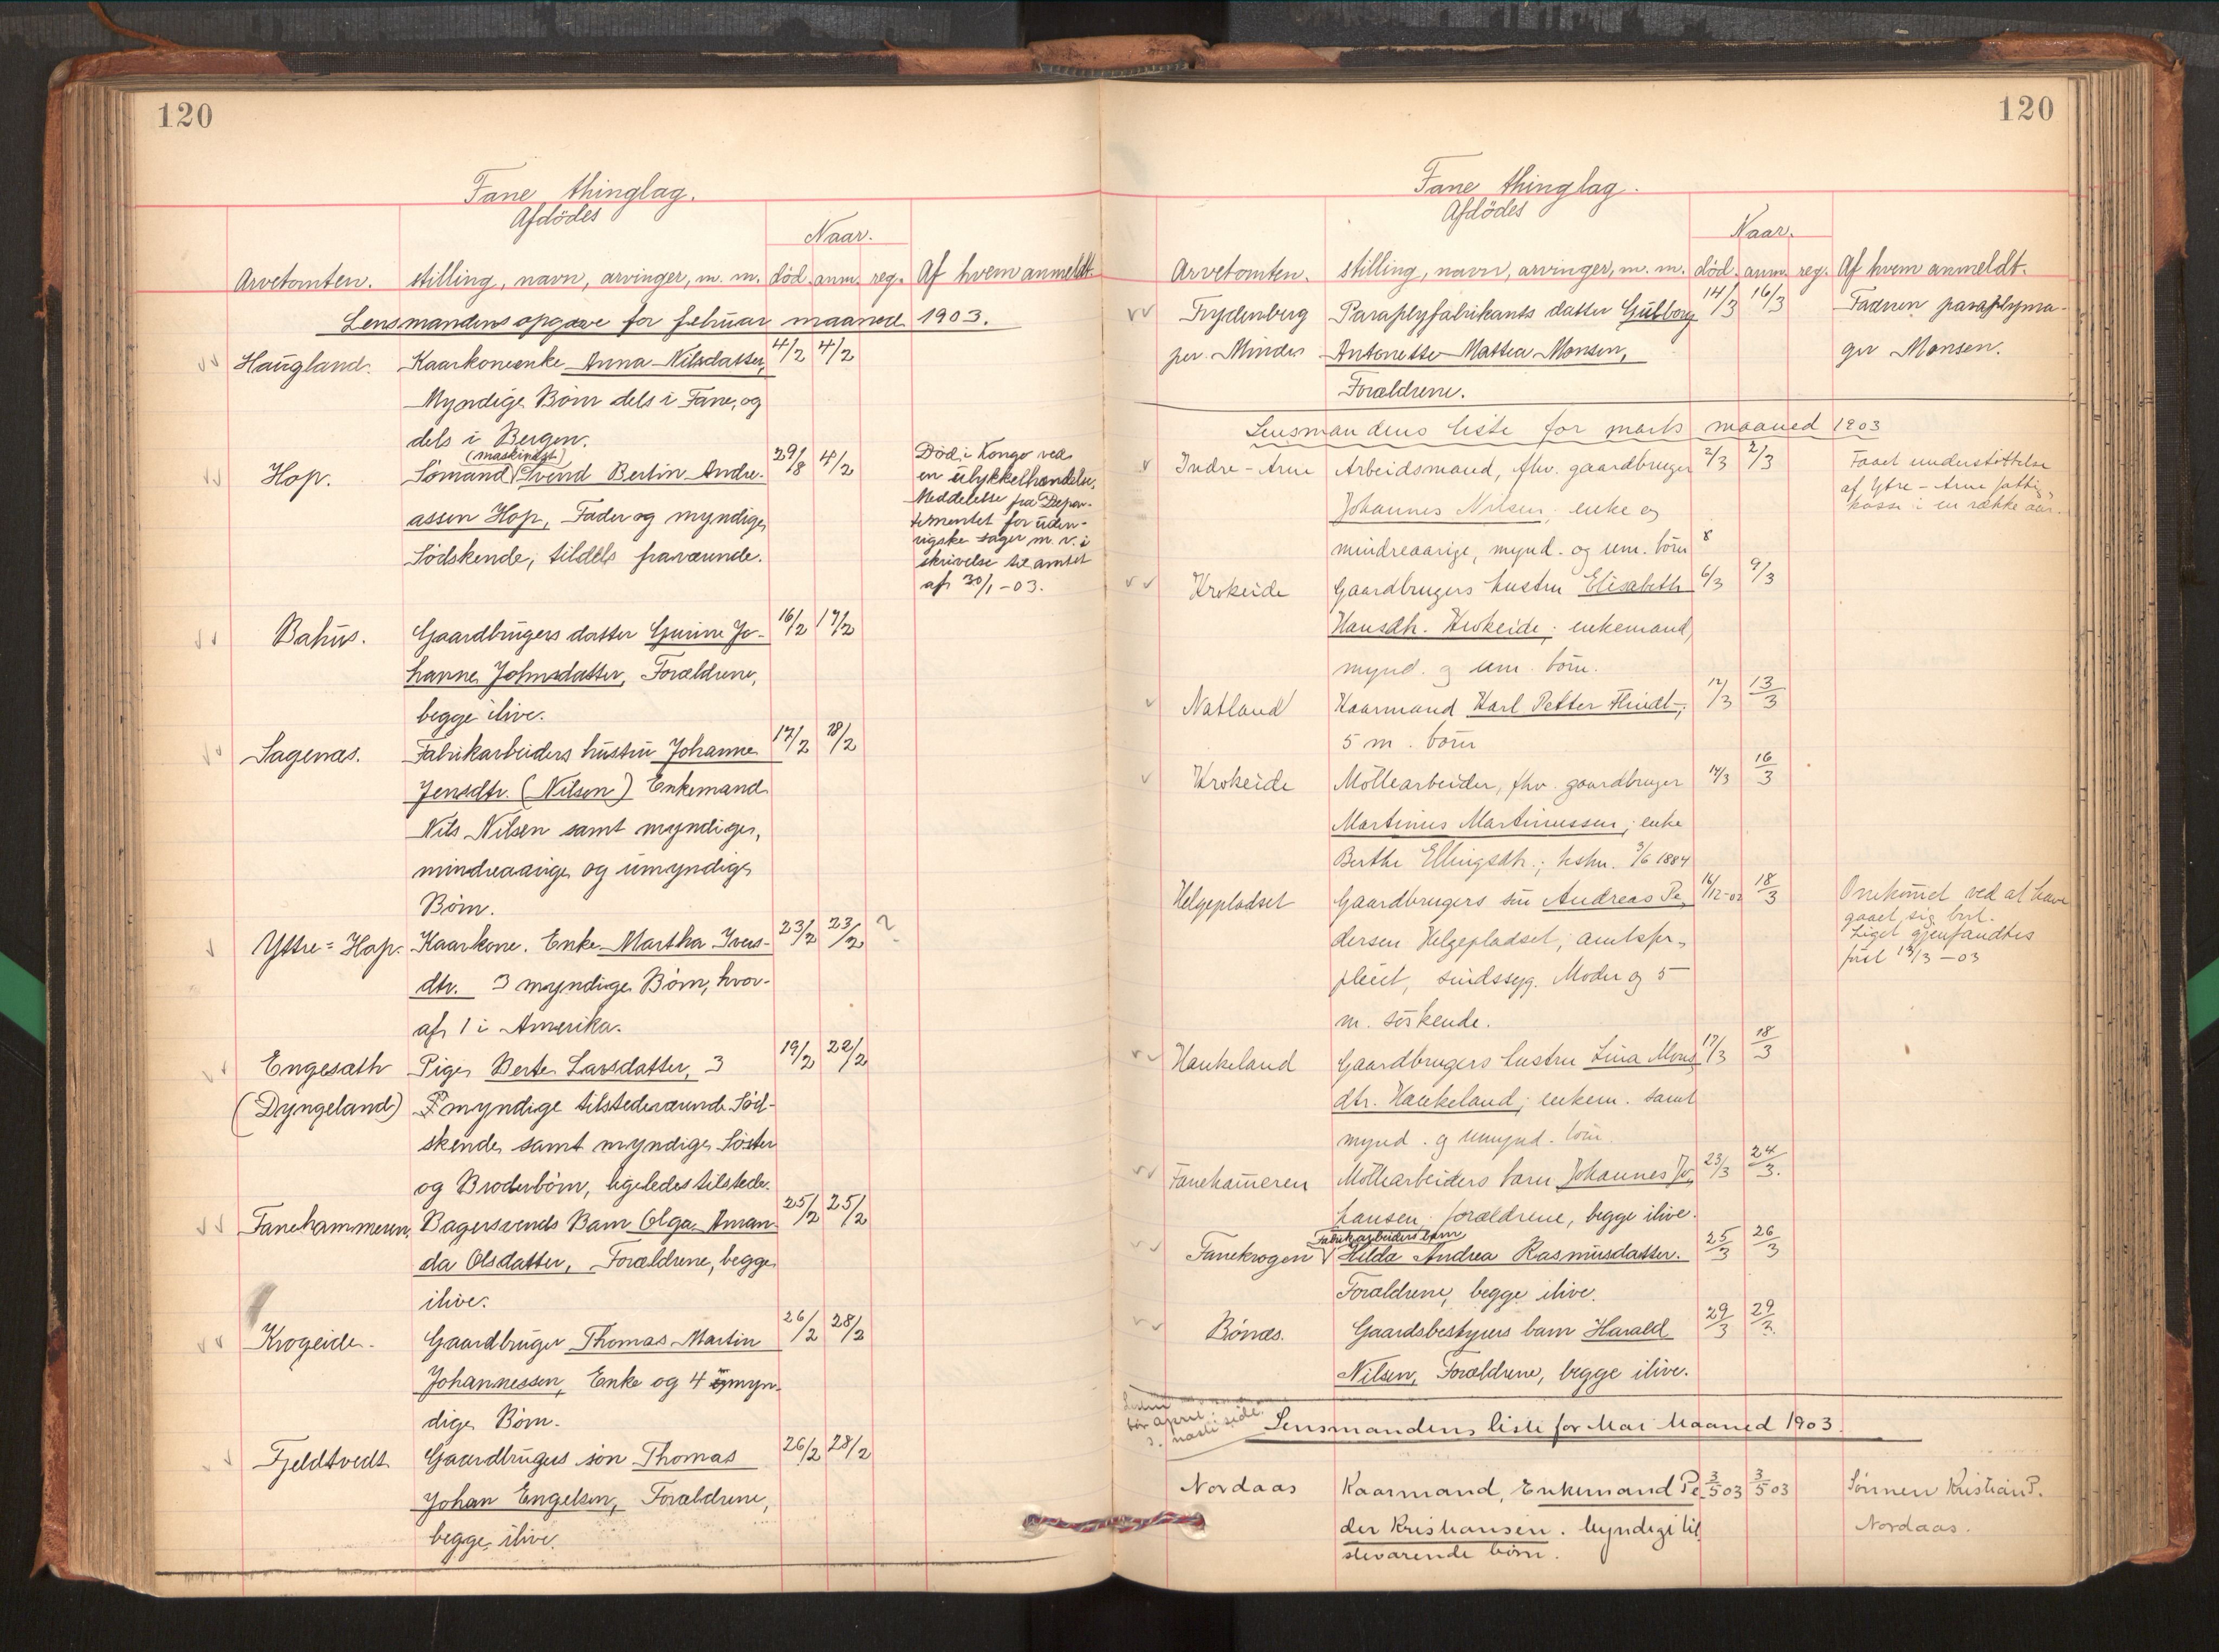 120
Fane thinglag.
Afdödes
Naar.
Arvetomten. stilling, navn, arvinger, m. m. död. anm. reg. Af hvem anmeldt.
Lensmandens opgave for februar maaned 1903.
Haugland. Kaarkoneenke Anna Nilsdatter, 4/2 4/2
Myndige Börn dels i Fane, og
dels i Bergen.
(maskinist)
Hop. Sömand Svend Bertin Andre- 29/8 4/2
assen Hop, Fader og myndige
Södskende, tildels fraværende.
Död i Kongo ved
en ulykkelhændelse.
Meddelelse fra Depar-
tementet for uden-
rigske sager m. v. i
skrivelse til amtet
af 30/1 - 03.
Bahus. Gaardbrugers datter Gurine Jo- 16/2 17/2
hanne Johnsdatter, Forældrene,
begge ilive.
Sagenæs. Fabrikarbeiders hustru Johanne 17/2 18/2
Jensdtr. (Nilsen) Enkemand
Nils Nilsen samt myndige,
mindreaarige og umyndige
Börn.
Yttre=Hop. Kaarkone. Enke Martha Ivers- 23/2 23/2 ?
dtr. 3 myndige Börn, hvor-
af 1 i Amerika.
Engesæth Pige Berte Larsdatter, 3 19/2 22/2
(Dyngeland) myndige tilstedeværende Söd-
skende samt myndige Söster
og Broderbörn, ligeledes tilstede.
Fanehammeren. Bagersvends Barn Olga Aman- 25/2 25/2
da Olsdatter, Forældrene, begge
ilive.
Krogeide. Gaardbruger Thomas Martin 26/2 28/2
Johannessen, Enke og 4 umyn-
dige Börn.
Fjeldtvedt Gaardbrugers sön Thomas 26/2 28/2
Johan Engelsen, Forældrene,
begge ilive.
120
Fane thinglag.
Afdödes
Naar.
Arvetomten. stilling, navn, arvinger, m. m. död. anm. reg. Af hvem anmeldt.
Frydenberg Paraplyfabrikants datter Gudborg 14/3 16/3 Faderen paraplyma-
per Minde Antonette Mattea Monsen, ger Monsen.
Forældrene.
Lensmandens liste for marts maaned 1903
Indre-Arne Arbeidsmand, fhv. gaardbruger 2/3 2/3
Johannes Nilsen; enke og
mindreaarige, mynd. og um. börn 8
Faaet understöttelse
af Ytre-Arne fattig-
kasse i en række aar.
Krokeide Gaardbrugers hustru Elisabeth 6/3 9/3
Hansdtr. Krokeide; enkemand,
mynd. og um. börn.
Natland Kaarmand Karl Petter Flindt; 12/3 13/3
5 m. börn
Krokeide Möllearbeider, fhv. gaardbruger 14/3 16/3
Martinus Martinussen; enke
Berthe Ellingsdtr.; testm. 3/6 1884
Helgepladset Gaardbrugers sön Andreas Pe- 16/12-02 18/3
dersen Helgepladset; amtsfor-
pleiet, sindssyg. Moder og 5
m. söskende.
Omkommet ved at have
gaaet sig bort.
Liget gjenfandtes
först 13/3 - 03
Haukeland Gaardbrugers hustru Lina Mons- 17/3 18/3
dtr. Haukeland; enkem. samt
mynd. og umynd. börn.
Fanehameren Möllearbeiders barn Johannes Jo- 23/3 24/3.
hansen, forældrene, begge ilive.
Fabrikarbeiders barn
Fanekrogen Hilda Andrea Rasmusdatter. 25/3 26/3
Forældrene, begge ilive.
Bönæs. Gaardsbestyrers barn Harald 29/3 29/3.
Nilsen, Forældrene, begge ilive.
for april
s. næste side.
Lensmandens liste for Mai Maaned 1903.
Nordaas Kaarmand, Enkemand Pe- 3/5 03 3/5 03 Sönnen Kristian P.
der Kristiansen. Myndige til- Nordaas.
stevarende börn.